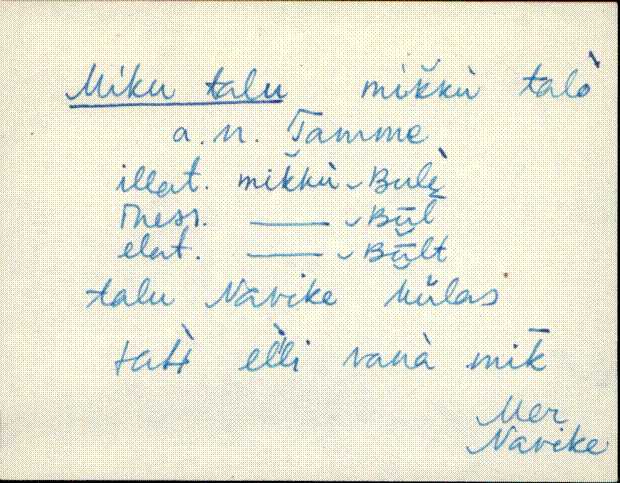 Miku talu mik̆kù talò
a. n. Tamme
illat. mik̆kù ⌣ Bulè̮
iness. —— ⌣ Bū̮l
elat. —— ⌣ Bū̮lt
talu Navike külas
elli vanà mik̄
Mer
Navike